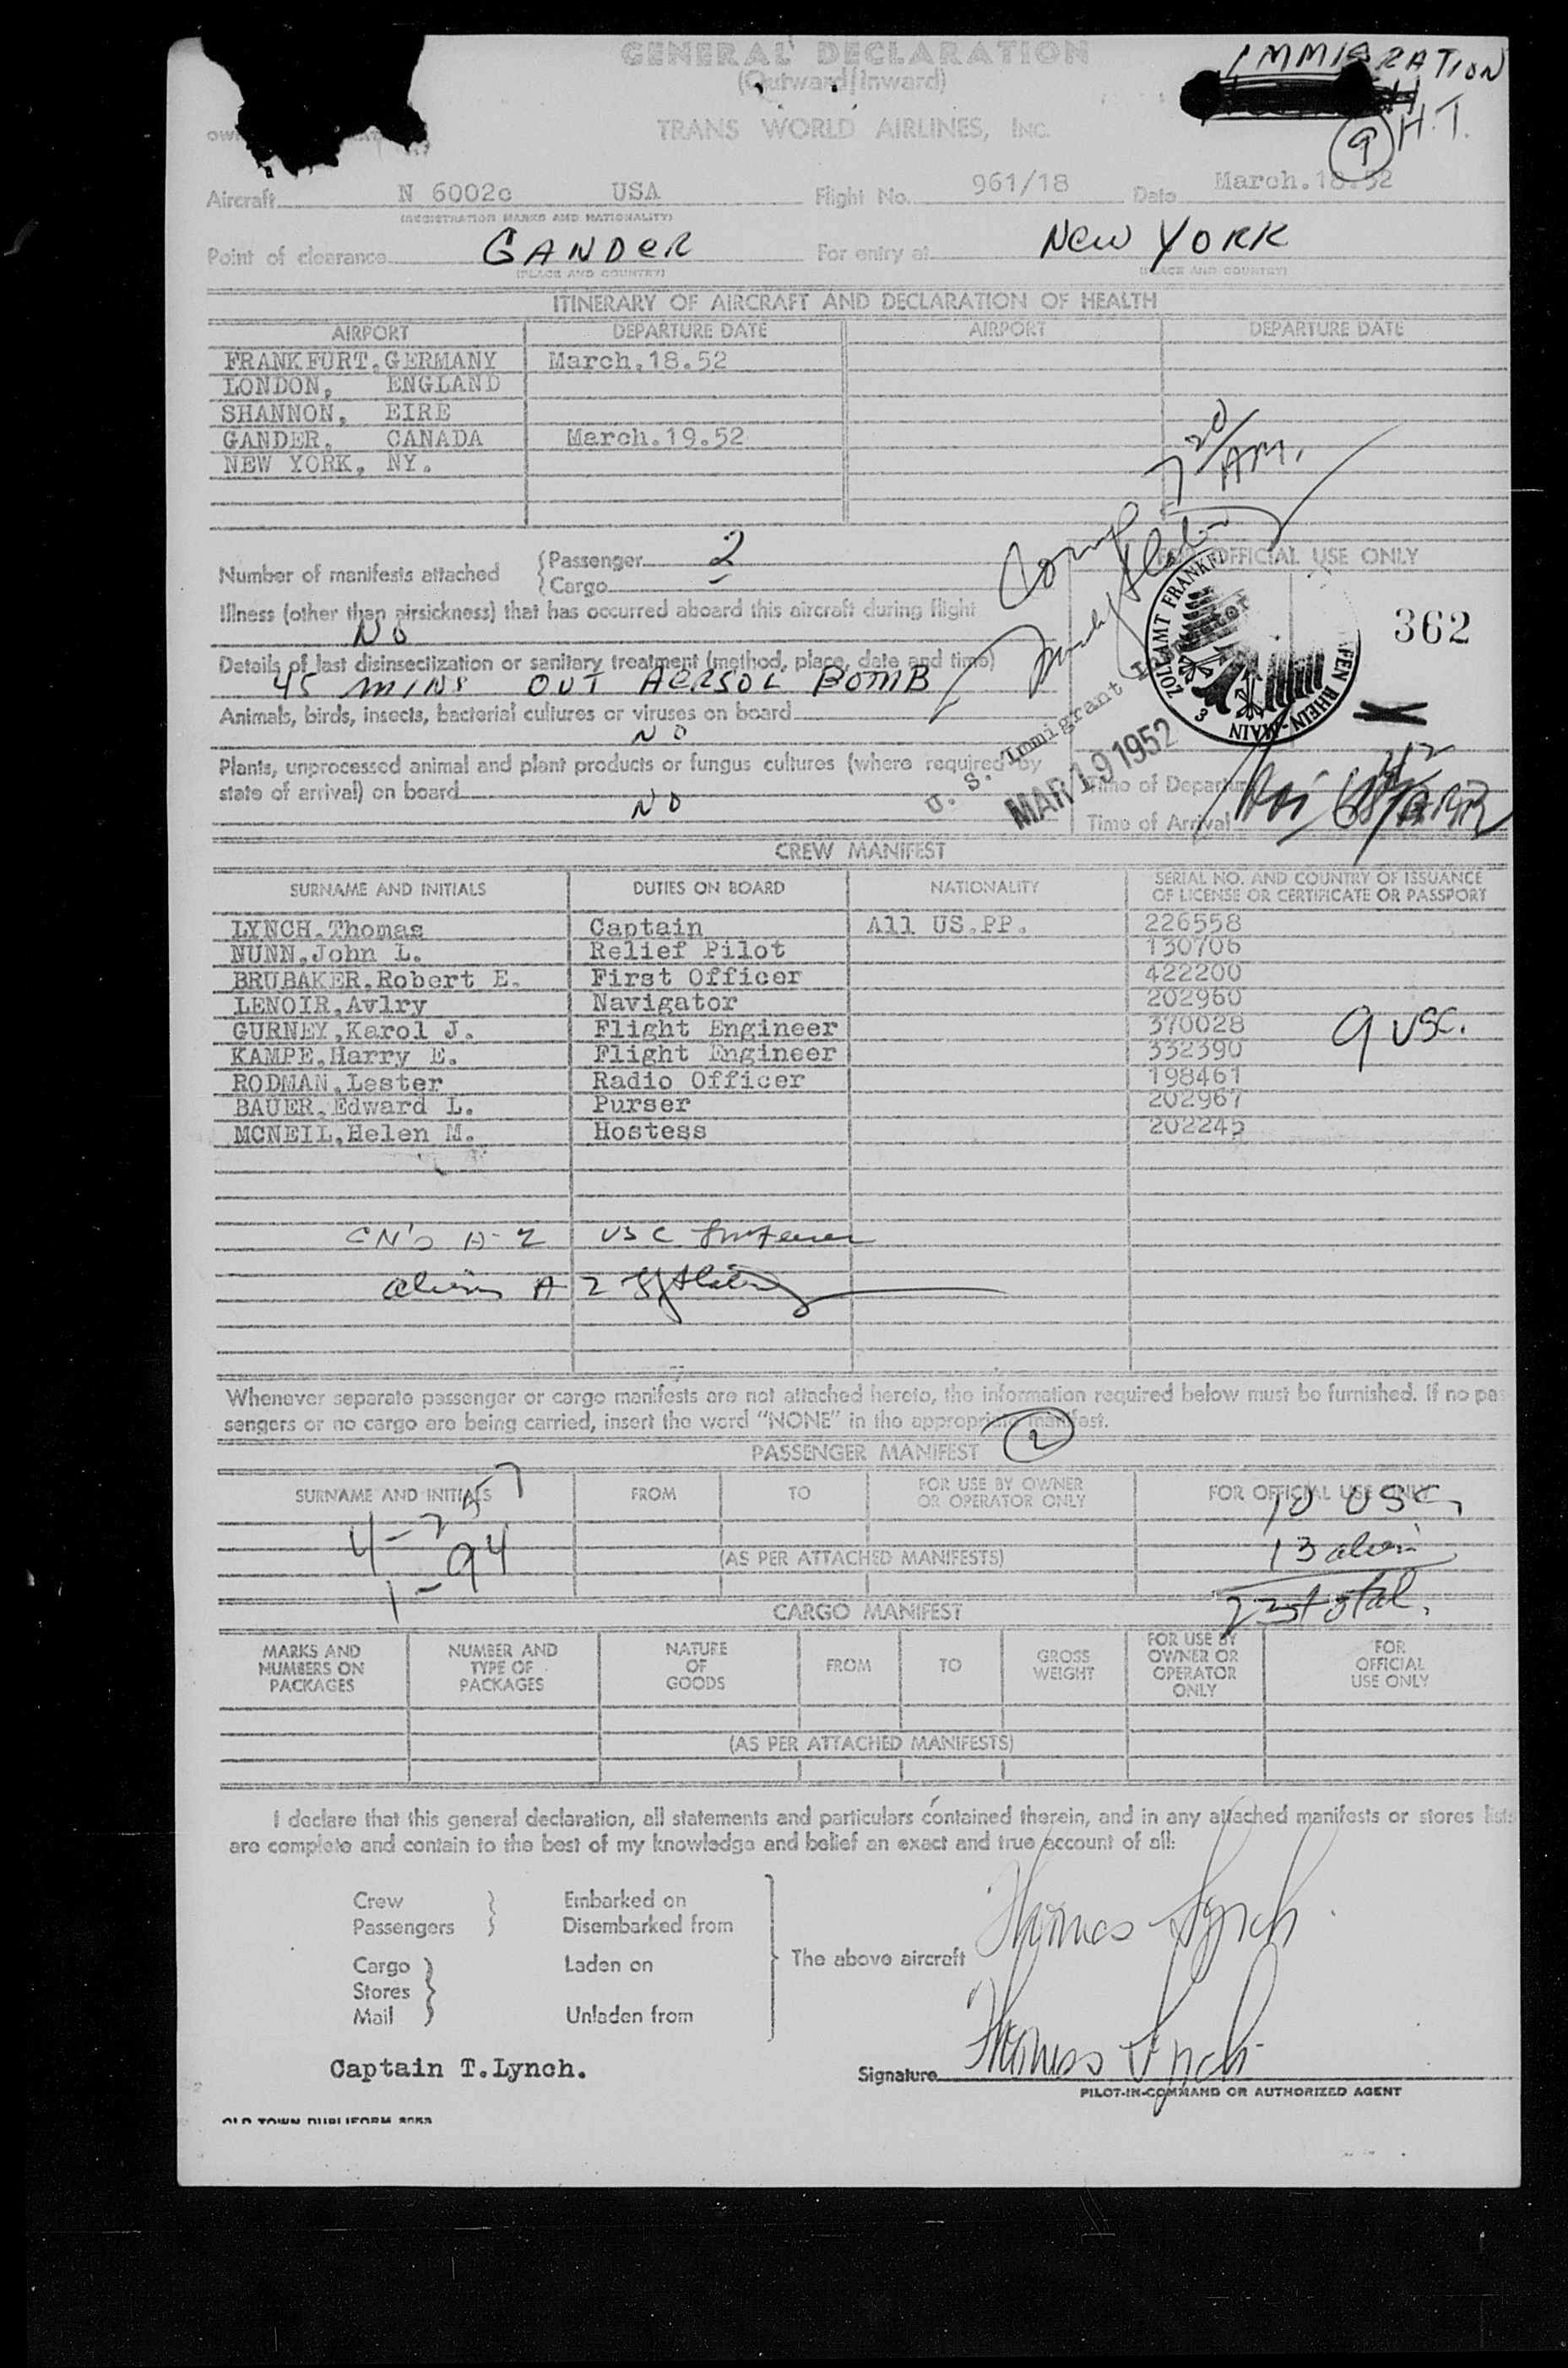 GENERAL DECLARATION
(Outward/Inward)
IMMIGRATION
TRANS WORLD AIRLINES, INC.
9 H.T.
Aircraft N 6002c USA Flight No. 961/18 Date March.18.52
(REGISTRATION MARKS AND NATIONALITY)
Point of clearance GANDER For entry at New YORK
(PLACE AND COUNTRY) (PLACE AND COUNTRY)
ITINERARY OF AIRCRAFT AND DECLARATION OF HEALTH
AIRPORT DEPARTURE DATE AIRPORT DEPARTURE DATE
FRANKFURT,GERMANY March.18.52
LONDON, ENGLAND
SHANNON, EIRE
GANDER, CANADA March.19.52
NEW YORK, NY.
7 20 AM.
Number of manifests attached
Passenger 2
Cargo -
FOR OFFICIAL USE ONLY
Illness (other than airsickness) that has occurred aboard this aircraft during flight
No
362
Details of last disinsectization or sanitary treatment (method, place, date and time)
45 mins OUT AERSOL BOMB
ZOLLAMT RHEIN-MAIN 3
Animals, birds, insects, bacterial cultures or viruses on board
NO
U. S. Immigrant Inspector
MAR 19 1952
Plants, unprocessed animal and plant products or fungus cultures (where required by
state of arrival) on board
NO
Time of Departure
Time of Arrival
CREW MANIFEST
SURNAME AND INITIALS DUTIES ON BOARD NATIONALITY SERIAL NO. AND COUNTRY OF ISSUANCE
OF LICENSE OR CERTIFICATE OR PASSPORT
LYNCH,Thomas Captain All US.PP. 226558
NUNN,John L. Relief Pilot 130706
BRUBAKER,Robert E. First Officer 422200
LENOIR,Avlry Navigator 202960
GURNEY,Karol J. Flight Engineer 370028 9 USC.
KAMPE,Harry E. Flight Engineer 332390
RODMAN,Lester Radio Officer 198461
BAUER,Edward L. Purser 202967
MCNEIL,Helen M. Hostess 202245
USC
A 2
Whenever separate passenger or cargo manifests are not attached hereto, the information required below must be furnished. If no pas
sengers or no cargo are being carried, insert the word "NONE" in the appropriate manifest.
2
PASSENGER MANIFEST
SURNAME AND INITIALS FROM TO FOR USE BY OWNER
OR OPERATOR ONLY FOR OFFICIAL USE ONLY
10 USC,
(AS PER ATTACHED MANIFESTS)
1 - 94
13
23 total.
CARGO MANIFEST
MARKS AND
NUMBERS ON
PACKAGES
NUMBER AND
TYPE OF
PACKAGES
NATURE
OF
GOODS
FROM
TO
GROSS
WEIGHT
FOR USE BY
OWNER OR
OPERATOR
ONLY
FOR
OFFICIAL
USE ONLY
(AS PER ATTACHED MANIFESTS)
I declare that this general declaration, all statements and particulars contained therein, and in any attached manifests or stores lists
are complete and contain to the best of my knowledge and belief an exact and true account of all:
Crew Embarked on
Passengers Disembarked from
Cargo Laden on
Stores
Mail Unladen from
The above aircraft Thomas Lynch
Captain T.Lynch.
Signature Thomas Lynch
PILOT-IN-COMMAND OR AUTHORIZED AGENT
OLD TOWN DUPLIFORM